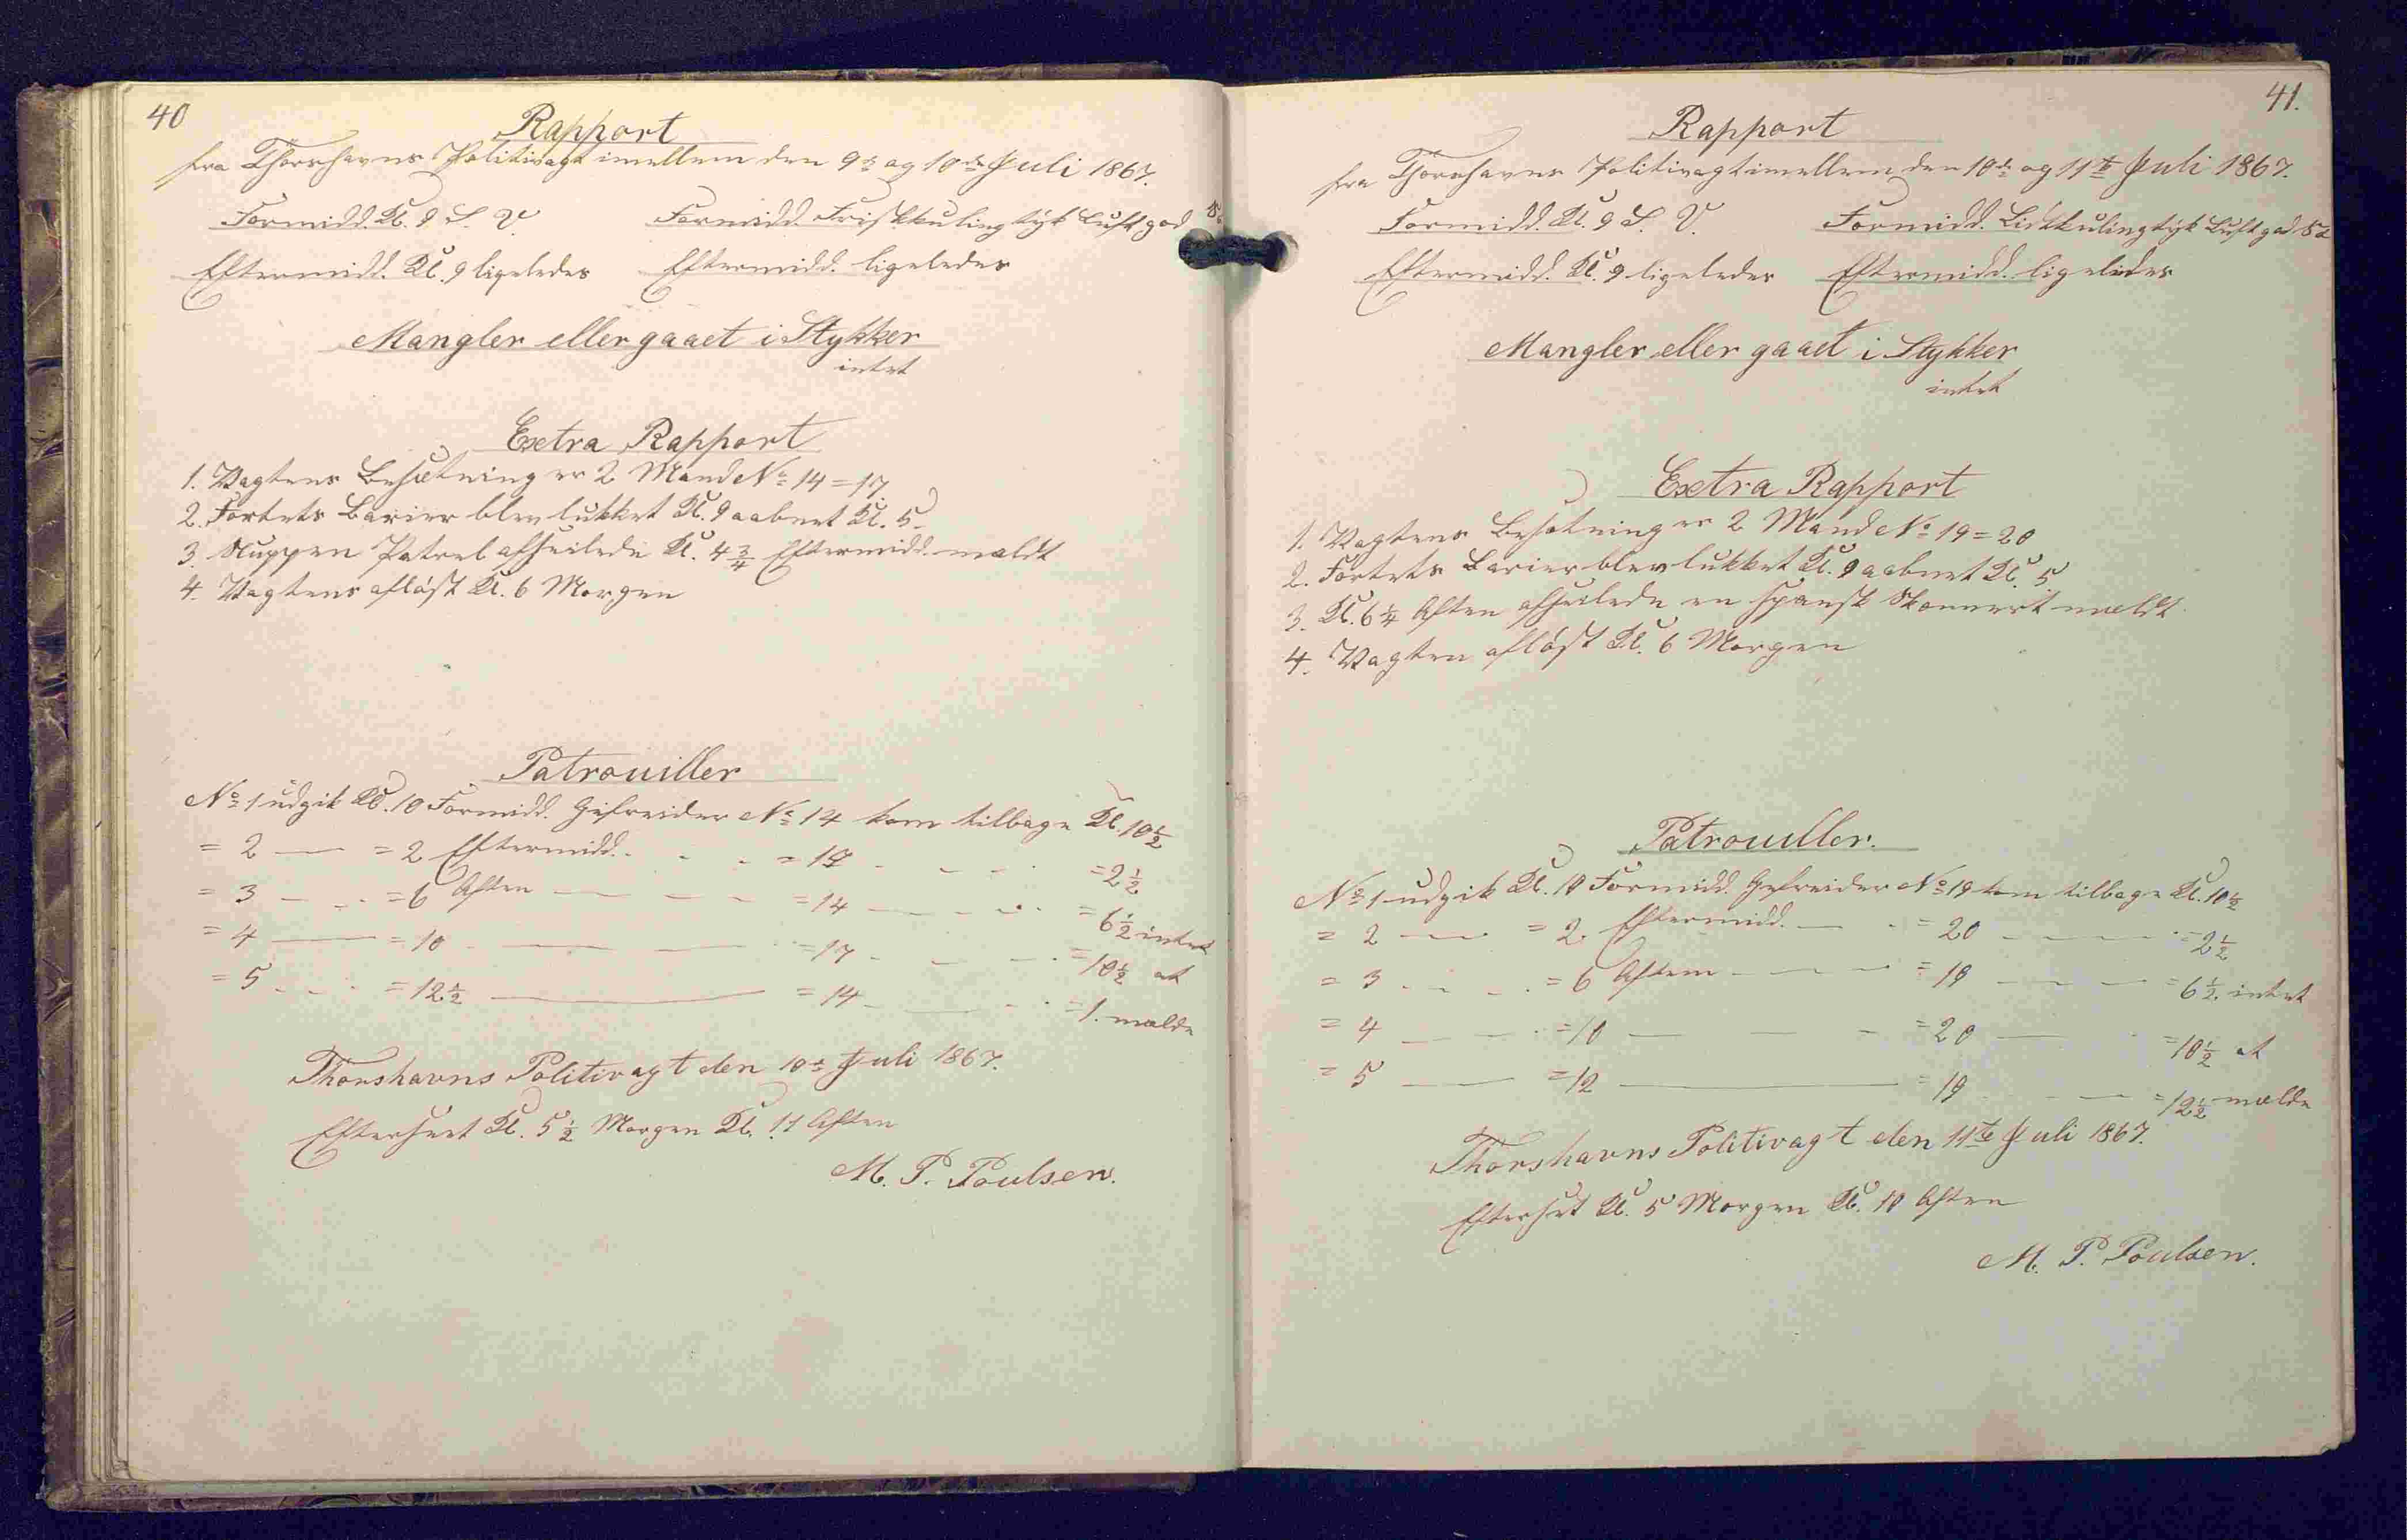 40
Rapport
fra Thorshavns Politivagt imellem den 9de og 10de Juli 1867.
Formidd. Kl. 9 S. V. Formidd. Frisk kuling tyk Luft god
Eftermidd. Kl. 9 ligeledes Eftermidd. ligeledes
Mangler eller gaaet i Stykker
intet
Extra Rapport
1. Vagtens Besætning er 2 Mand No 14 = 17
2. Fortets Barier blev lukket Kl. 9 aabnet Kl. 5.
3. Sluppen Patrel afseilede Kl. 4 3/4 Eftermidd. mældt
4. Vagtens afløst Kl. 6 Morgen
Patrouiller
No 1 udgik Kl. 10 Formidd. Gefreider No 14 kom tilbage Kl. 10 1/2
= 2 — = 2 Eftermidd. - - = 17 - - - = 2 1/2
= 3 — = 6 Aften — — - = 14 — - - = 6 1/2 intet
= 4 — = 10 - — — = 17 - - - = 10 1/2 at
= 5 - - = 12 1/2 — = 14 - — - = 1. mælde
Thorshavns Politivagt den 10de Juli 1867.
Efterseet Kl. 5 1/2 Morgen Kl. 11 Aften
M. P. Poulsen.
41.
Rapport
fra Thorshavns Politivagt imellem den 10de og 11te Juli 1867.
Formidd. Kl. 9 S. V. Formidd. Lidt kuling tyk Luft god
Eftermidd. Kl. 9 ligeledes Eftermidd. ligeledes
Mangler eller gaaet i Stykker
intet
Extra Rapport
1. Vagtens Besætning er 2 Mand No 19 = 20
2. Fortets Barier blev lukket Kl. 9 aabnet Kl. 5
3. Kl. 6 1/4 Aften afseilede en spansk Skonnert mældt
4. Vagten afløst Kl. 6 Morgen
Patrouiller.
No 1 udgik Kl. 10 Formidd. Gefreider No 19 kom tilbage Kl. 10 1/2
= 2 — = 2. Eftermidd. — - = 20 - — - = 2 1/2
= 3 - - = 6 Aften - — - = 19 — - — = 6 1/2 intet
= 4 — - = 10 — — - = 20 — - = 10 1/2 at
= 5 — = 12 — = 19 - - — = 12 1/2 mælde
Thorshavns Politivagt den 11te Juli 1867.
Efterset Kl. 5 Morgen Kl. 10 Aften
M. P. Poulsen.